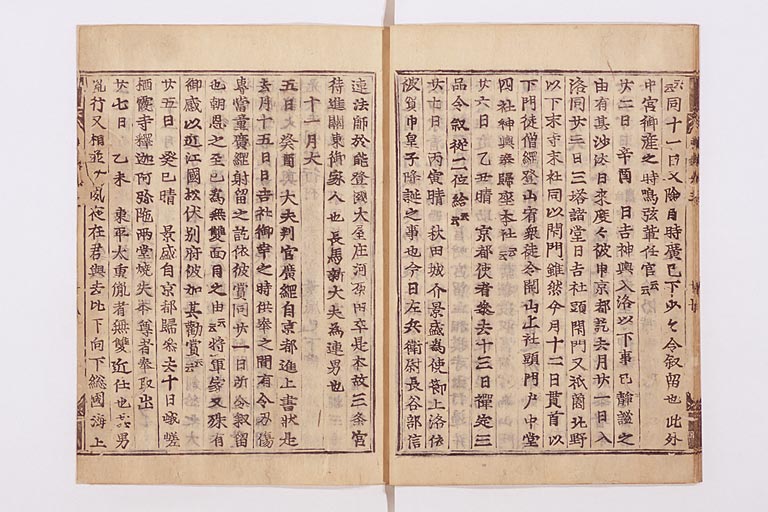 云云同十一日又除目時廣已下少々令叙留也此外
中宮御産之時鳴弦輩任官云云
廿二日 辛酉 日吉神輿入洛以下事已靜謐之
由有其沙汰日來度々彼申京都訖去月廿一日入
洛同廿三日三塔諸堂日吉社頭閇門又祇園北野
以下末寺末社同以閇門雖然今月十二日貫首以
下門徒僧經登山宥衆徒令開山上社頭門戸中堂
四社神輿奉歸座本社云云
廿六日 乙丑晴 京都使者參去十三日禪定三
品令叙從一位給云云
廿七日 丙寅晴 秋田城介景盛爲使節上洛依
彼賀申皇子降誕之事也今日左兵衛尉長谷部信
連法師於能登國大屋庄河原田卒是本故三條宮
侍進關東御家人也長馬新大夫爲連男也
十一月大
五日 癸酉 大夫判官廣經自京都進上書状是
去月十五日日吉社御幸之時供奉之間有令刃傷
專當童廣經射留之訖依彼賞同廿一日所令叙留
也朝恩之至已爲無雙面目之由云云將軍家又殊有
御感以近江國松伏別府被加其勸賞云云
廿五日 癸巳晴 景盛自京都歸參去十日嵯峨
栖霞寺釋迦阿弥陁兩堂燒失本尊者奉取出
廿七日 乙未 東平太重胤者無雙近仕也
胤行又相並於夙夜在君與去比下向下總國海上